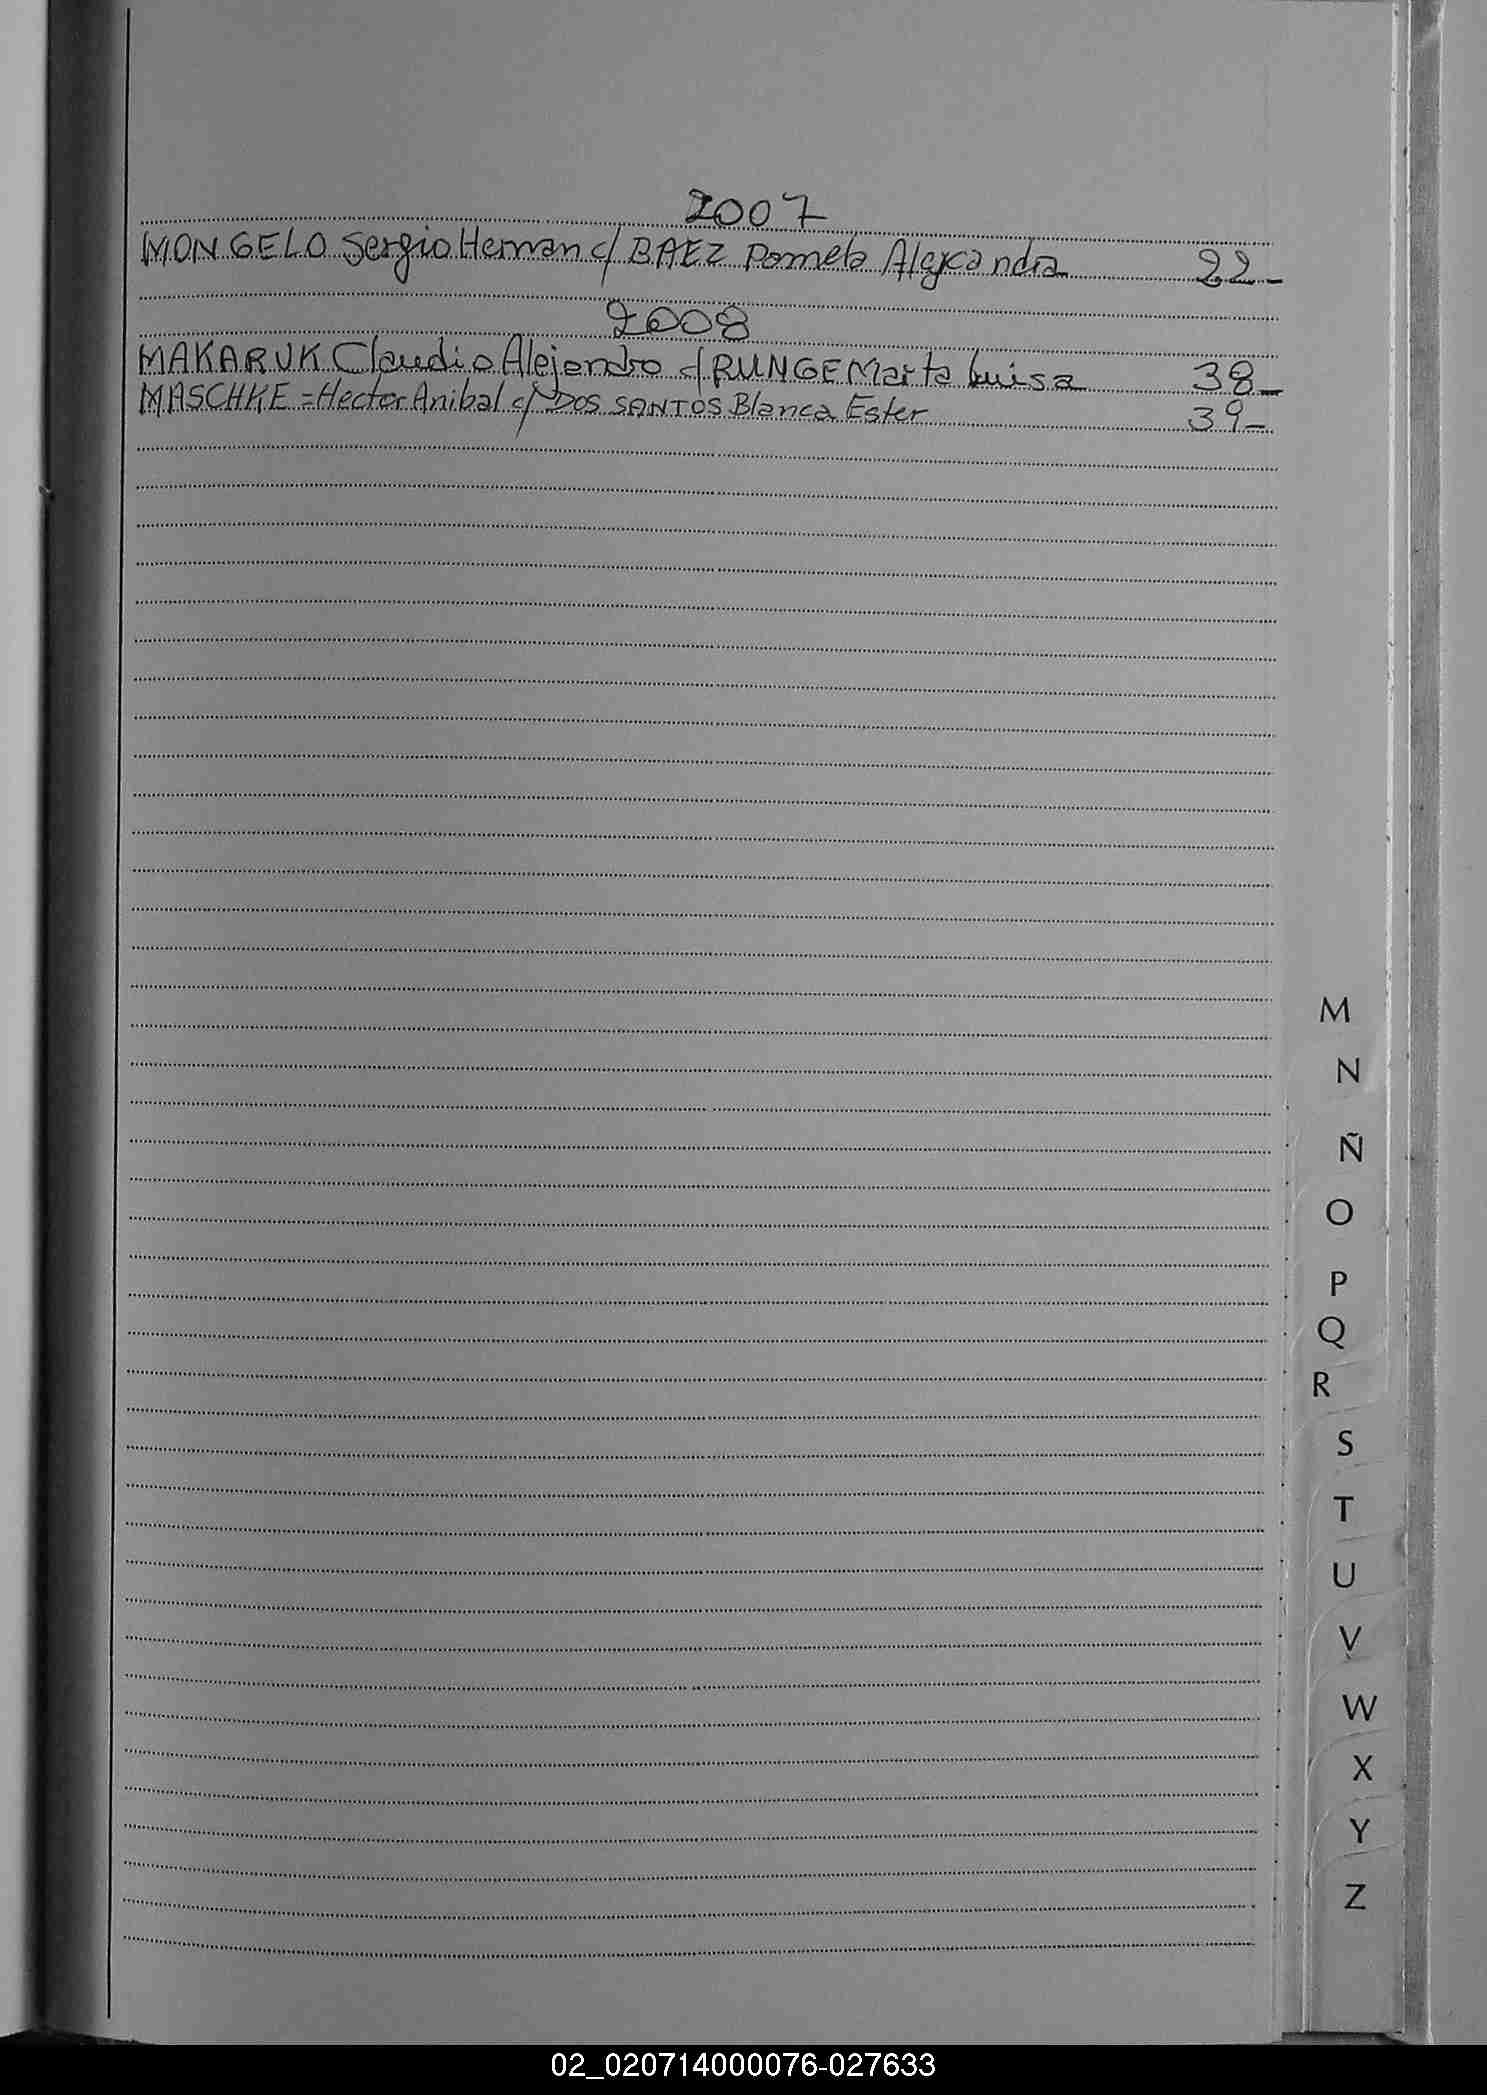 2007
MONGELO Sergio Hernan c/ BAEZ Pamela Alejandra 22_
2008
MAKARUK Claudio Alejandro c/ RUNGE Marta Luisa 38_
MASCHKE = Hector Anibal c/ DOS SANTOS Blanca Ester 39_
M
N
Ñ
O
P
Q
R
S
T
U
V
W
X
Y
Z
02_020714000076-027633